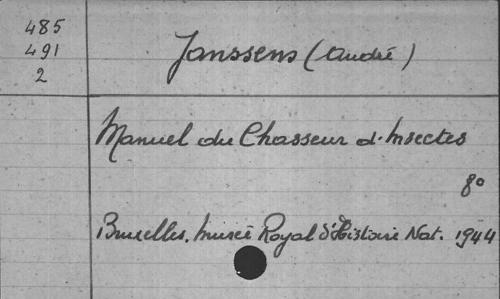 485
491
2
Janssens (André)
Manuel du Chasseur d'Insectes
8º
Bruxelles, Musée Royal d'Histoire Nat. 1944